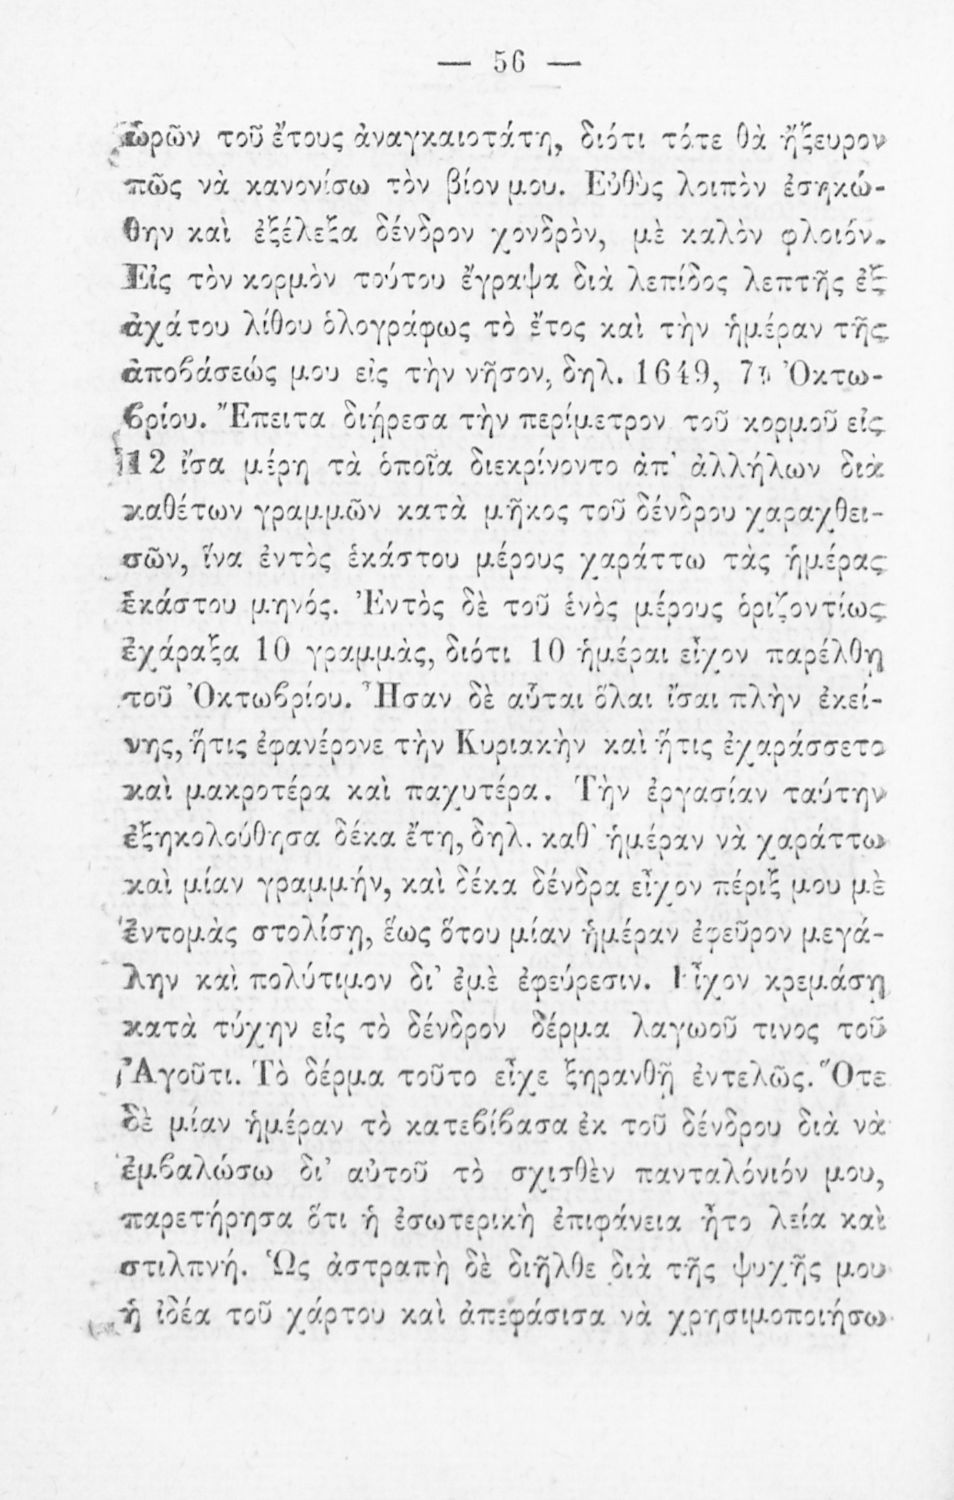 — 56 —
ὡρῶν τοῦ ἔτους ἀναγκαιοτάτη, διότι τότε θὰ ἤξευρον
πῶς νὰ κανονίσω τὸν βίον μου. Εὐθὺς λοιπὸν ἐσηκώ-
θην καὶ ἐξέλεξα δένδρον χονδρὸν, μὲ καλὸν φλοιόν.
Εἰς τὸν κορμὸν τούτου ἔγραψα διὰ λεπίδος λεπτῆς ἐξ
ἀχάτου λίθου ὁλογράφως τὸ ἔτος καὶ τὴν ἡμέραν τῆς
ἀποβάσεώς μου εἰς τὴν νῆσον, δηλ. 1649, 7ῃ Ὀκτω-
βρίου. Ἔπειτα διῄρεσα τὴν περίμετρον τοῦ κορμοῦ εἰς
12 ἴσα μέρη τὰ ὁποῖα διεκρίνοντο ἀπ' ἀλλήλων διὰ
καθέτων γραμμῶν κατὰ μῆκος τοῦ δένδρου χαραχθει-
σῶν, ἵνα ἐντὸς ἑκάστου μέρους χαράττω τὰς ἡμέρας
ἑκάστου μηνός. Ἐντὸς δὲ τοῦ ἑνὸς μέρους ὁριζοντίως
ἐχάραξα 10 γραμμὰς, διότι 10 ἡμέραι εἶχον παρέλθῃ
τοῦ Ὀκτωβρίου. Ἦσαν δὲ αὗται ὅλαι ἴσαι πλὴν ἐκεί-
νης, ἥτις ἐφανέρονε τὴν Κυριακὴν καὶ ἥτις ἐχαράσσετο
καὶ μακροτέρα καὶ παχυτέρα. Τὴν ἐργασίαν ταύτην
ἐξηκολούθησα δέκα ἔτη, δηλ. καθ' ἡμέραν νὰ χαράττω
καὶ μίαν γραμμήν, καὶ δέκα δένδρα εἶχον πέριξ μου μὲ
ἐντομὰς στολίσῃ, ἕως ὅτου μίαν ἡμέραν ἐφεῦρον μεγά-
λην καὶ πολύτιμον δι' ἐμὲ ἐφεύρεσιν. Εἶχον κρεμάσῃ
κατὰ τύχην εἰς τὸ δένδρον δέρμα λαγωοῦ τινος τοῦ
Ἀγοῦτι. Τὸ δέρμα τοῦτο εἶχε ξηρανθῆ ἐντελῶς. Ὅτε
δὲ μίαν ἡμέραν τὸ κατεβίβασα ἐκ τοῦ δένδρου διὰ νὰ
ἐμβαλώσω δι' αὐτοῦ τὸ σχισθὲν πανταλόνιόν μου,
παρετήρησα ὅτι ἡ ἐσωτερικὴ ἐπιφάνεια ἦτο λεία καὶ
στιλπνή. Ὡς ἀστραπὴ δὲ διῆλθε διὰ τῆς ψυχῆς μου
ἡ ἰδέα τοῦ χάρτου καὶ ἀπεφάσισα νὰ χρησιμοποιήσω